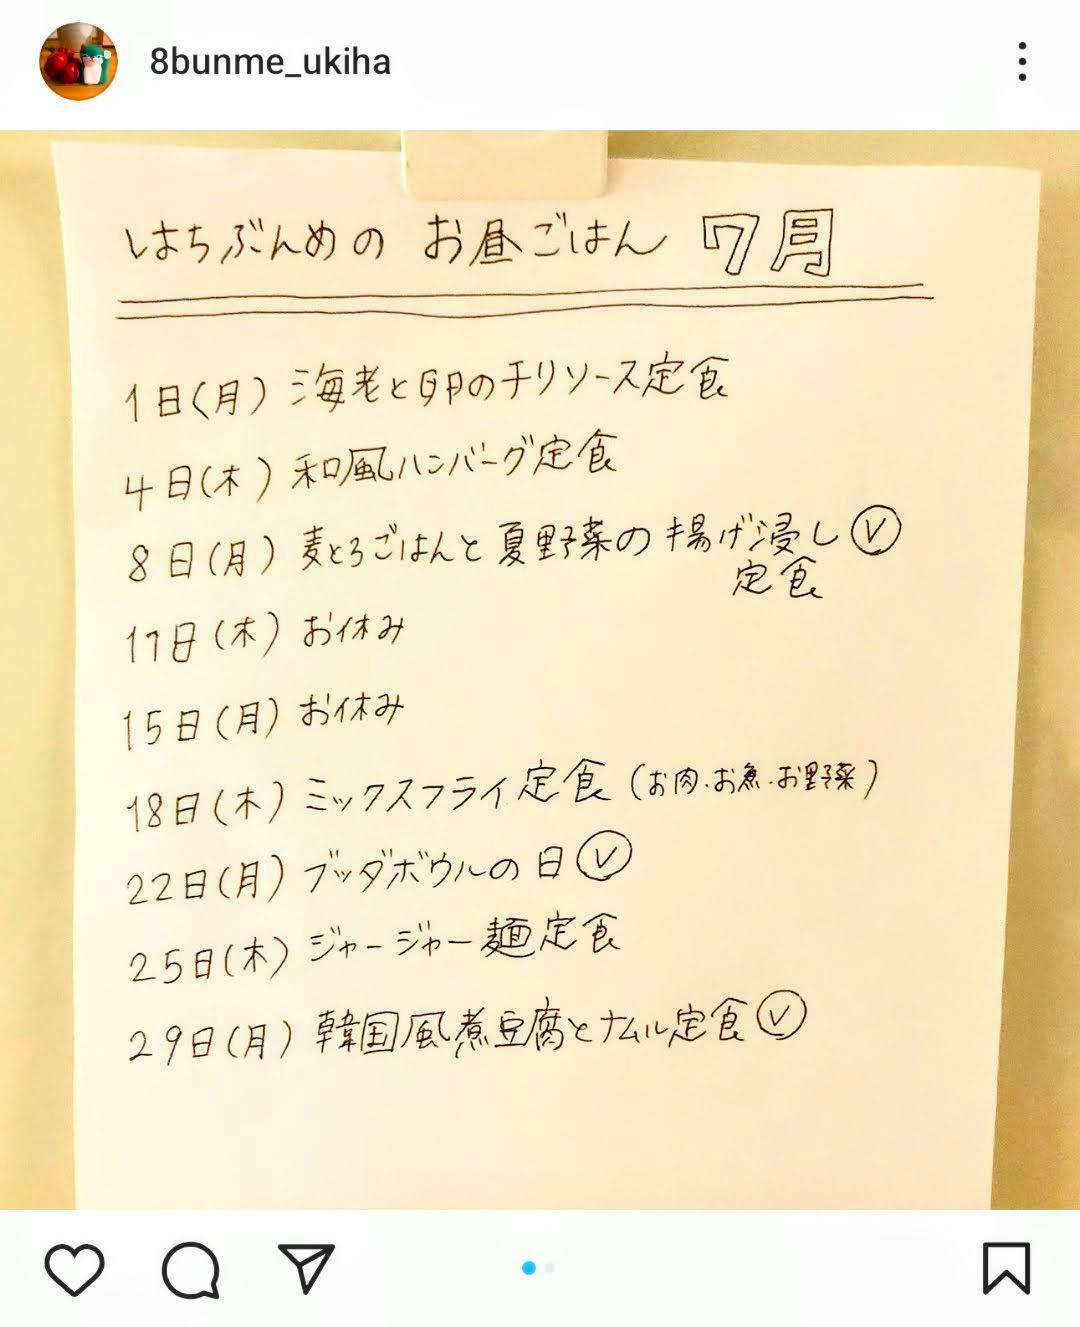 8bunme_ukiha
はちぶんめの お昼ごはん 7月
1日(月) 海老と卵のチリソース定食
4日(木) 和風ハンバーグ定食
8日(月) 麦とろごはんと夏野菜の揚げ浸し Ⓥ
定食
11日(木) お休み
15日(月) お休み
18日(木) ミックスフライ定食 (お肉・お魚・お野菜)
22日(月) ブッダボウルの日 Ⓥ
25日(木) ジャージャー麺定食
29日(月) 韓国風煮豆腐とナムル定食 Ⓥ